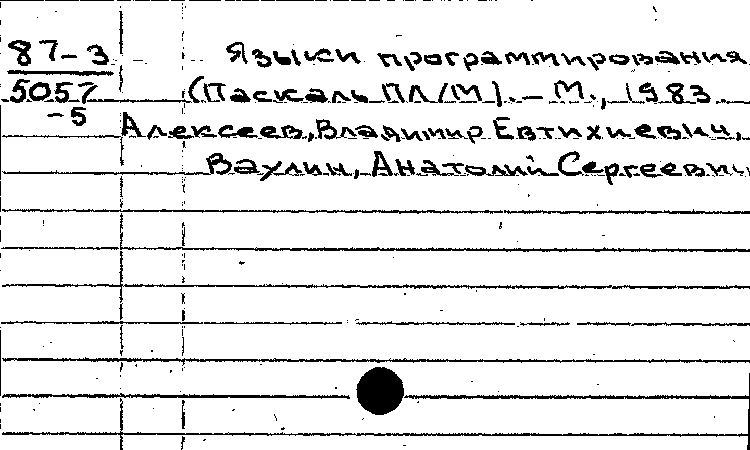 87-3 Языки программирования
5057 (Паскаль ПЛ/М). - М., 1983.
-5
Алексеев, Владимир Евтихиевич,
Ваулин, Анатолий Сергеевич